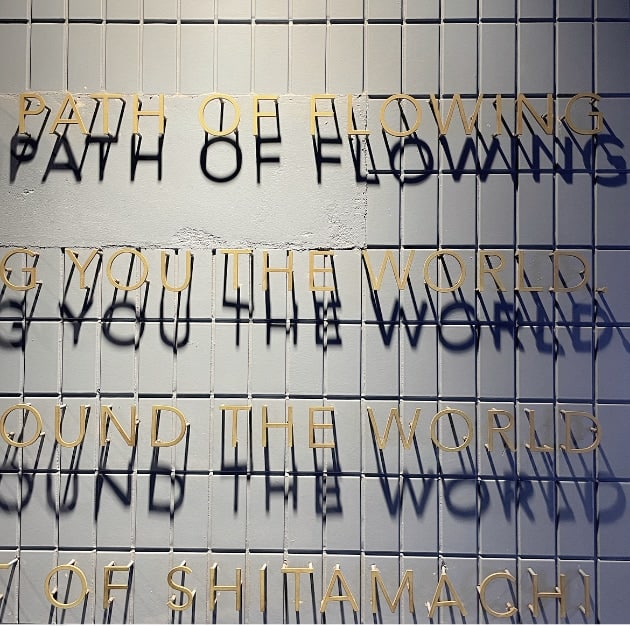 PATH OF FLOWING
G YOU THE WORLD.
OUND THE WORLD
OF SHITAMACHI